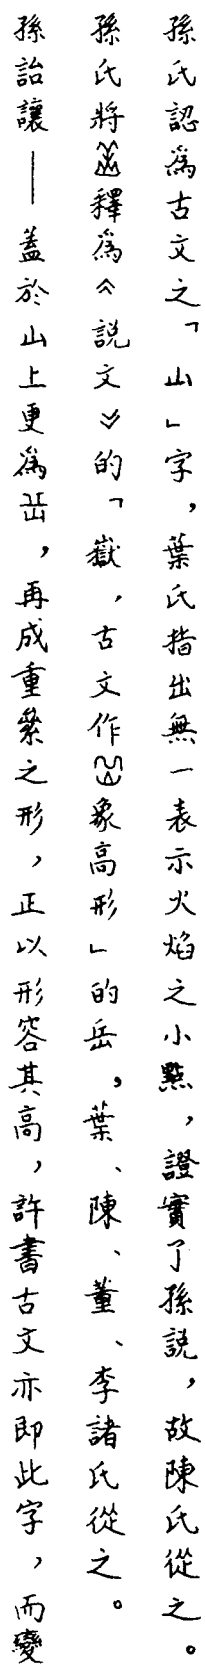 孫氏認為古文之「山」字，葉氏指出無一表示火焰之小點，證實了孫說，故陳氏從之。
孫氏將釋為《說文》的「嶽，古文作象高形」的岳，葉、陳、董、李諸氏從之。
孫詒讓——蓋於山上更為，再成重絫之形，正以形容其高，許書古文亦即此字，而變